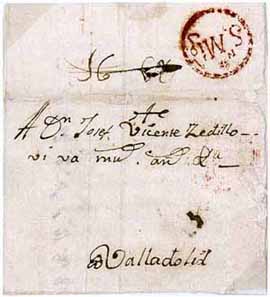 S. Mig
A Dn Josef Vicente Zedillo
viva ms. as.
Valladolid